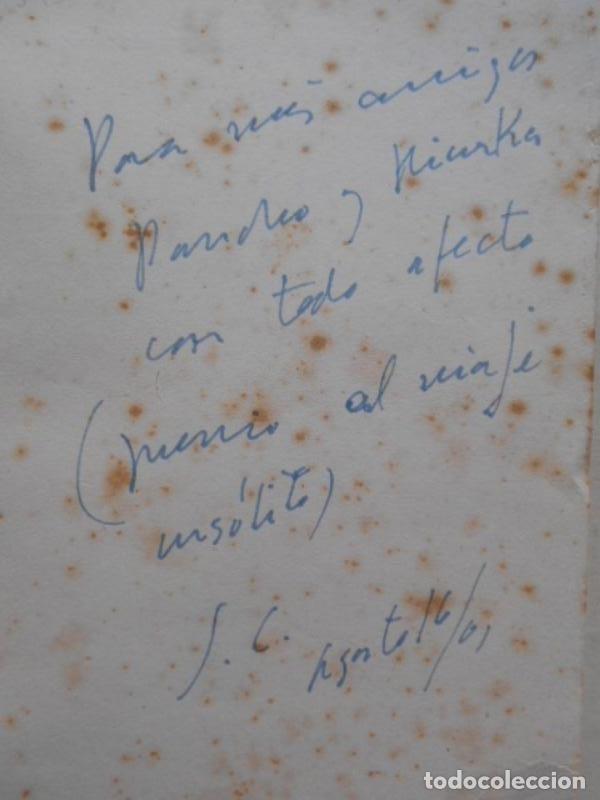 Para mis amigos
Pancho y Niurka
con todo afecto
(previo al viaje
insólito)
J. C. Agosto 16/01
todocoleccion